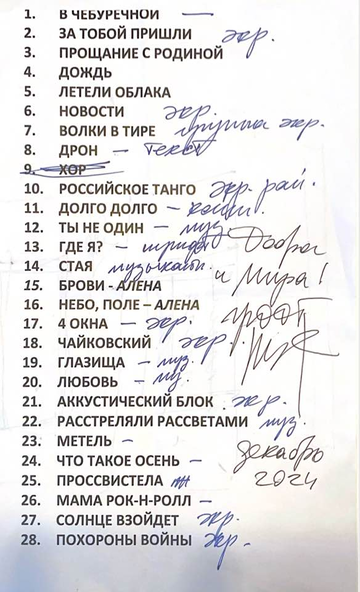 1. В ЧЕБУРЕЧНОЙ —
2. ЗА ТОБОЙ ПРИШЛИ экр.
3. ПРОЩАНИЕ С РОДИНОЙ
4. ДОЖДЬ
5. ЛЕТЕЛИ ОБЛАКА
6. НОВОСТИ экр.
7. ВОЛКИ В ТИРЕ экр.
8. ДРОН — текст
9. ХОР
10. РОССИЙСКОЕ ТАНГО экр. рай.
11. ДОЛГО ДОЛГО —
12. ТЫ НЕ ОДИН — муз.
13. ГДЕ Я? — Добра
14. СТАЯ и мира!
15. БРОВИ - АЛЕНА
16. НЕБО, ПОЛЕ – АЛЕНА
17. 4 ОКНА — экр.
18. ЧАЙКОВСКИЙ экр.
19. ГЛАЗИЩА — муз.
20. ЛЮБОВЬ — му.
21. АККУСТИЧЕСКИЙ БЛОК экр.
22. РАССТРЕЛЯЛИ РАССВЕТАМИ муз.
23. МЕТЕЛЬ –
24. ЧТО ТАКОЕ ОСЕНЬ – декабрь
25. ПРОССВИСТЕЛА 2024
26. МАМА РОК-Н-РОЛЛ —
27. СОЛНЦЕ ВЗОЙДЕТ экр.
28. ПОХОРОНЫ ВОЙНЫ экр.